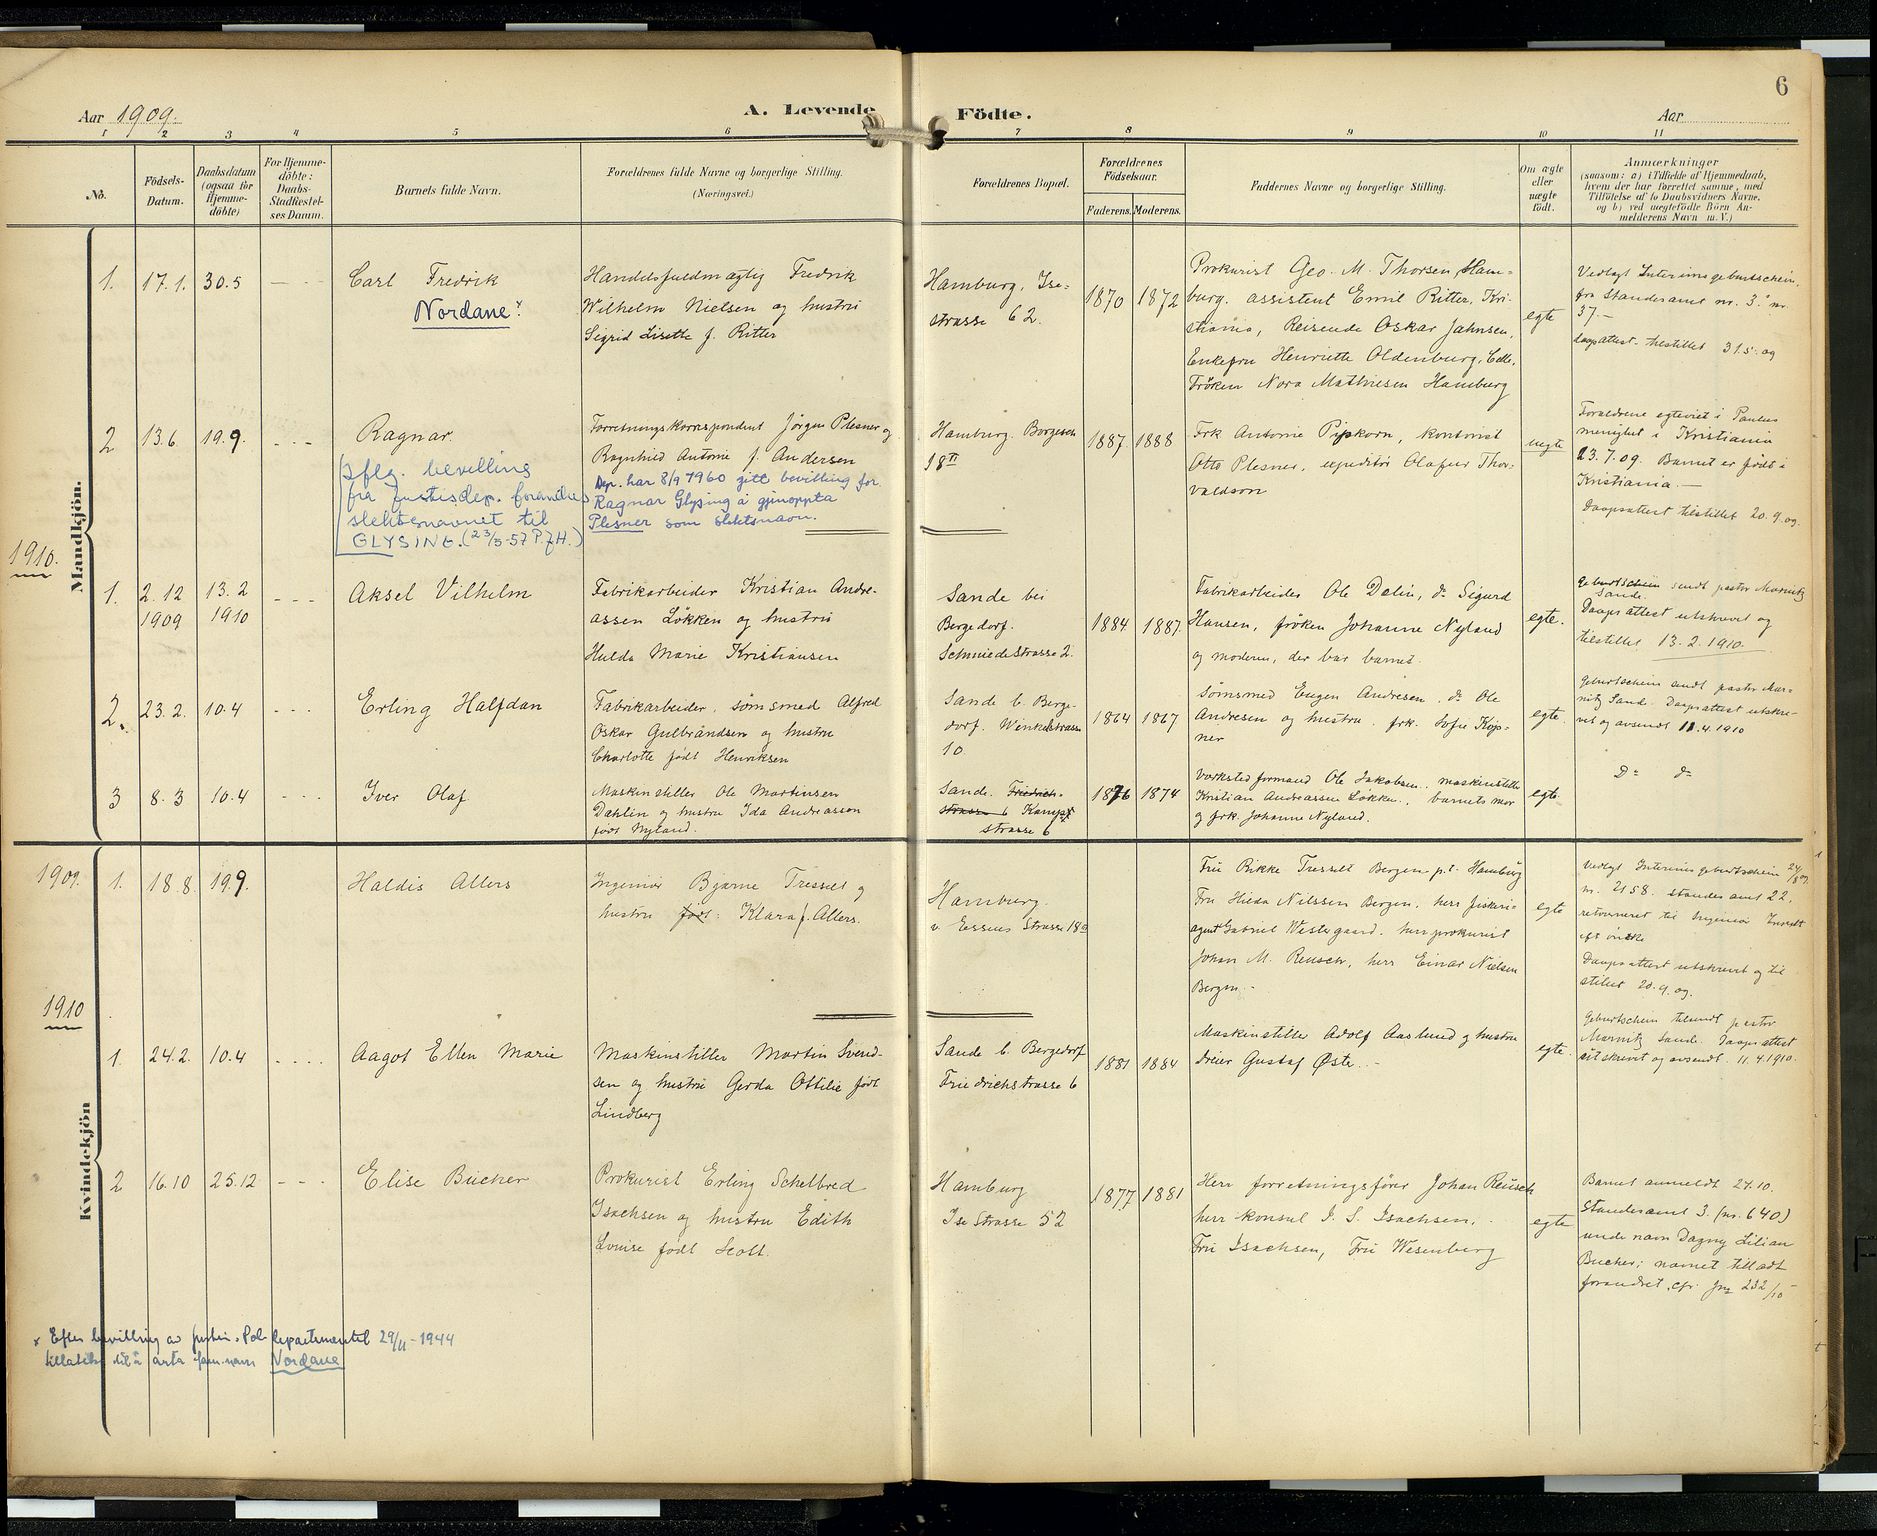 Aar 1909.
A. Levende
Födte.
Aar
6
1 2 3 4 5 6 7 8 9 10 11
No.
Födsels-
Datum.
Daabsdatum
(ogsaa for
Hjemme-
döbte)
For Hjemme-
döbte:
Daabs-
Stadfæstel-
ses Datum.
Barnets fulde Navn.
Forældrenes fulde Navne og borgerlige Stilling.
(Næringsvei.)
Forældrenes Bopæl.
Forældrenes
Födselsaar.
Faderens. Moderens.
Faddernes Navne og borgerlig Stilling.
Om ægte
eller
uægte
födt.
Anmærkninger
(saasom: a) i Tilfælde af Hjemmedaab,
hvem der har forrettet samme, med
Tilföielse af to Daabsvidners Navne.
og b) ved uægtefödte Börn An-
melderens Navn m. V.)
Mandkjön.
1. 17.1. 30.5 - - -
Carl Fredrik
Nordane x
Handelsfuldmægtig Fredrik
Wilhelm Nielsen og hustru
Sigrid Lisette f. Ritter
Hamburg, Ise-
strasse 62.
1870 1872
Prokurist Geo. M. Thorsen, Ham-
burg. assistent Emil Ritter, Kri-
stiania, Reisende Oskar Jahnsen,
Enkefru Henriette Oldenburg, Celle.
Fröken Nora Mathiesen Hamburg
egte
Vedlagt Interimsgeburtsschein,
fra Standesamt nr. 3. nr.
37.-
daapsattest tilstillet 31.5.09
2 13.6. 19.9. - - -
Ragnar.
Iflg. bevilling
fra justisdep. forandres
slektsnavnet til
GLYSING. (23/3-57 P.f.H.)
Forretningskorrespondent Jörgen Plesner og
Ragnhild Antonie f. Andersen
Dep. har 8/9 1960 gitt bevilling for
Ragnar Glysing å gjenoppta
Plesner som slektsnavn.
Hamburg. Borgesch
18 II
1887. 1888
Frk Antonie Pipkorn, kontorist
Otto Plesner, expeditör Olafur Thor-
valdson
uegte
Forældrene egteviet i Paulus
menighet i Kristiania
23.7.09. Barnet er født i
Kristiania.-
Daapsattest tilstillet 20.9.09.
1910.
1. 2.12 13.2 - - -
1909 1910
Aksel Vilhelm
Fabrikarbeider Kristian Andre-
assen Løkken og hustru
Hulda Marie Kristiansen
Sande bei
Bergedorf.
Schmiedestrasse 2.
1884 1887.
Fabrikarbeider Ole Dalin, do Sigurd
Hansen, fröken Johanne Nyland
og moderen, der bar barnet.
egte.
Geburtschein sendt pastor Marnitz
Sande.
Daapsattest utskrevet og
tilstillet 13.2.1910.
2. 23.2. 10.4 - - -
Erling Halfdan
Fabrikarbeider, sømsmed Alfred
Oskar Gulbrandsen og hustru
Charlotte født Henriksen
Sande b. Berge-
dorf. Winkelstrasse
10
1864 1867
Sømsmed Eugen Andresen, do Ole
Andresen og hustru, frk. Sofie Kop-
ner
egte
Geburtschein sendt pastor Mar-
nitz Sande. Daapsattest utskre-
vet og avsendt 11.4.1910
3 8.3 10.4 - - -
Iver Olaf
Maskinstiller Ole Martinsen
Dahlin og hustru Ida Andreasson
født Nyland.
Sande. Friedrich-
strasse 6 Kampf
strasse 6
1876 1874
Værkstedformand Ole Jakobsen, maskinstiller
Kristian Andreassen Løkken, barnets mor
og frk. Johanne Nyland.
egte
Do do
Kvindekjön
1909. 1. 18.8. 19.9.
Haldis Allers
Ingeniör Bjarne Tresselt og
hustru født: Klara f. Allers.
Hamburg.
v. Essens Strasse 18 II
Fru Rikke Tresselt Bergen p.t. Hamburg
Fru Hilda Nilssen Bergen, herr fiskeri-
agent Gabriel Westergaard, herr prokurist
Johan M. Reusch, herr Einar Nielsen
Bergen.-
egte
Vedlagt Interimsgeburtschein 24/8 09.
nr. 2158. Standesamt 22,
retourneret til Ingeniör Tresselt
eft. önske
Daapsattest utskrevet og til
stillet 20.9.09.
1910
1. 24.2. 10.4 - - - -
Aagot Ellen Marie
Maskinstiller Martin Svend-
sen og hustru Gerda Ottilie født
Lindberg
Sande b. Bergedorf
Friedrichstrasse 6
1881 1884
Maskinstiller Adolf Aaslund og hustru
dreier Gustaf Øste.-
egte.
Geburtschein tilsendt pastor
Marnitz Sande. Daapsattest
utskrevet og avsendt. 11.4.1910.
2 16.10 25.12 - - -
Elise Bucher
Prokurist Erling Schelbred
Isachsen og hustru Edith
Louise født Scott.
Hamburg
Ise Strasse 52
1877 1881
Herr forretningsförer Johan Reusch
herr konsul I. S. Isachsen,
Fru Isachsen, Fru Wesenberg
egte
Barnet anmeldt 27.10.
Standesamt 3. (nr. 640)
unde navn Dagny Lilian
Bucher; navnet tilladt
forandret, cfr. jnr 232/10
x Efter bevilling av Justis- og Pol. departementet 29/11-1944
tillatelse til å anta fam.navn Nordane